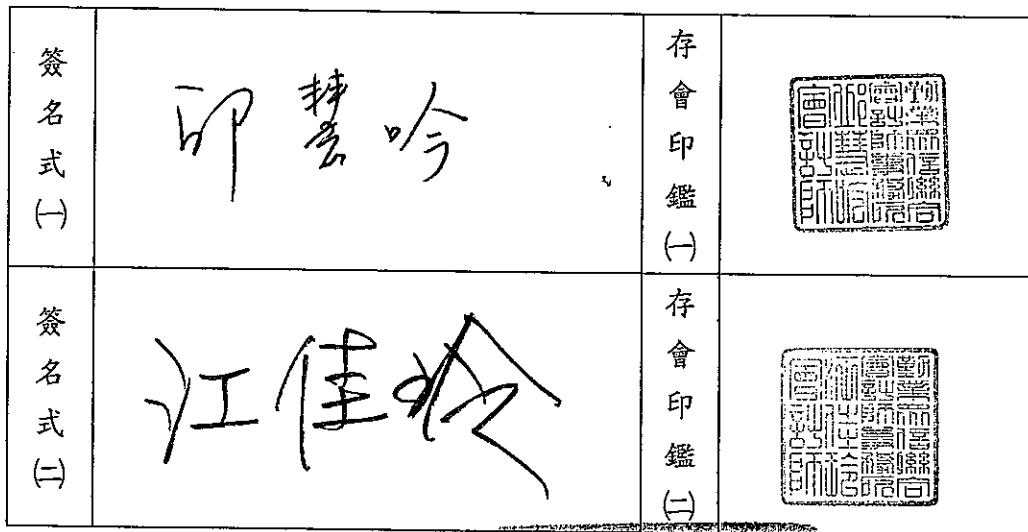 簽名式㈠
邱慧吟
存會印鑑㈠
勤業眾信聯合
會計師事務所
邱慧吟
會計師
簽名式㈡
江佳玲
存會印鑑㈡
勤業眾信聯合
會計師事務所
江佳玲
會計師